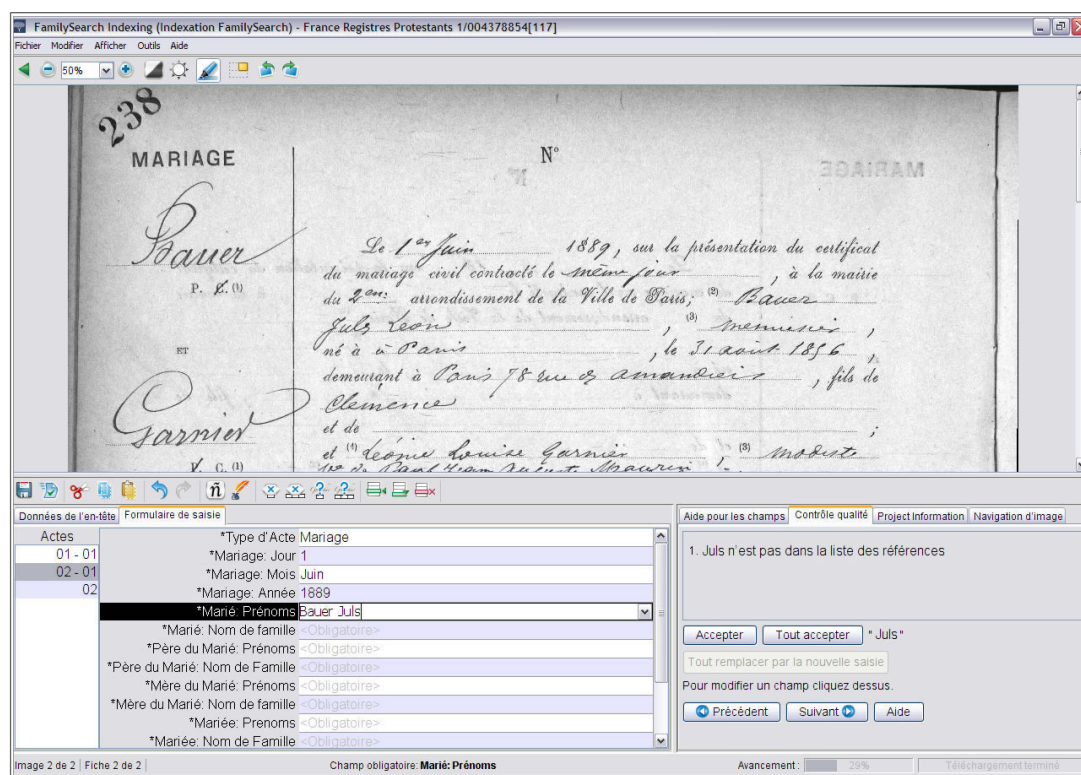 FamilySearch Indexing (Indexation FamilySearch) - France Registres Protestants 1/004378854[117]
Fichier Modifier Afficher Outils Aide
50%
238
MARIAGE
N°
MARIAGE
Bauer
P. C. (1)
ET
Garnier
V. C. (1)
Le 1er Juin 1889, sur la présentation du certificat
du mariage civil contracté le même jour, à la mairie
du 2em: arrondissement de la Ville de Paris; (2) Bauer
Juls Leon, (3) menuisier,
né à à Paris, le 31 août 1856,
demeurant à Paris 78 rue des amandiers, fils de
Clemence
et de ;
et (4) Léonie Louise Garnier, (3) modiste
Vve de Paul Jean August Maurin
Données de l'en-tête Formulaire de saisie
Actes
01 - 01
02 - 01
02
*Type d'Acte Mariage
*Mariage: Jour 1
*Mariage: Mois Juin
*Mariage: Année 1889
*Marié: Prénoms Bauer Juls
*Marié: Nom de famille <Obligatoire>
*Père du Marié: Prénoms <Obligatoire>
*Père du Marié: Nom de Famille <Obligatoire>
*Mère du Marié: Prénoms <Obligatoire>
*Mère du Marié: Nom de famille <Obligatoire>
*Mariée: Prenoms <Obligatoire>
*Mariée: Nom de Famille <Obligatoire>
Aide pour les champs Contrôle qualité Project Information Navigation d'image
1. Juls n'est pas dans la liste des références
Accepter Tout accepter "Juls"
Tout remplacer par la nouvelle saisie
Pour modifier un champ cliquez dessus.
Précédent Suivant Aide
Image 2 de 2 Fiche 2 de 2 Champ obligatoire: Marié: Prénoms Avancement: 29% Téléchargement terminé